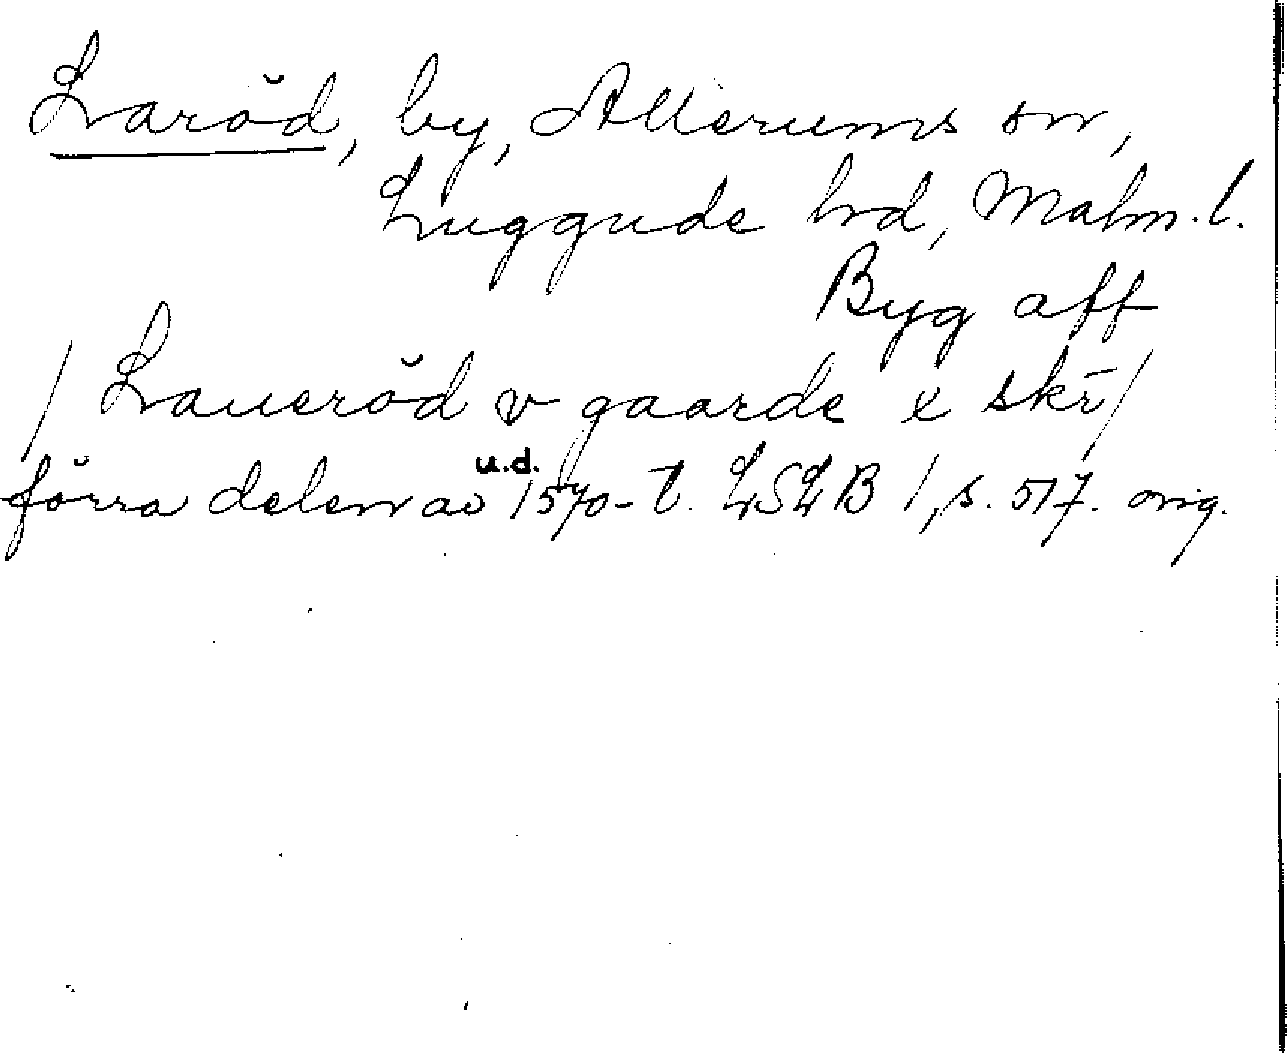 Laröd, by, Allerums sn,
Luggude hd, Malm. l.
Byg aff
/ Laueröd v gaarde x skr̄ /
u.d.
förra delen av 1570-t. LSLB 1, s. 517. orig.